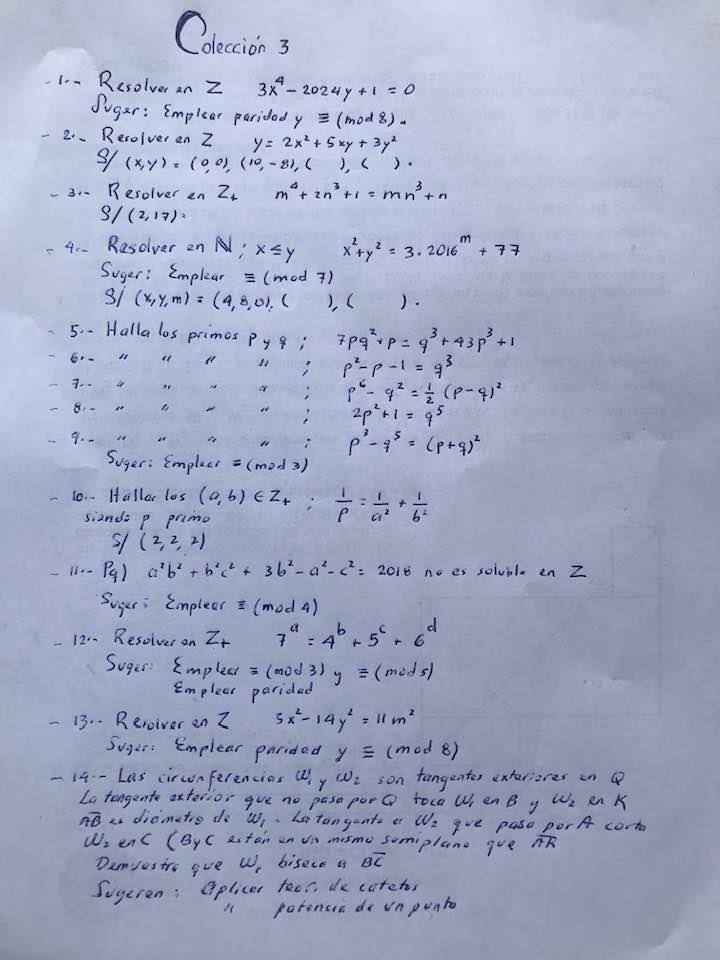 Colección 3
- 1.- Resolver en Z 3x⁴ - 2024y + 1 = 0
Suger: Emplear paridad y ≡ (mod 8).
- 2.- Resolver en Z y = 2x² + 5xy + 3y²
S/ (x,y) = (0,0), (10,-8), ( ), ( ).
- 3.- Resolver en Z₊ m⁴ + 2n³ + 1 = mn³ + n
S/ (2,17).
- 4.- Resolver en ℕ; x ≤ y x² + y² = 3.2016ᵐ + 77
Suger: Emplear ≡ (mod 7)
S/ (x,y,m) = (4,8,0), ( ), ( ).
- 5.- Halla los primos p y q ; 7pq² + p = q³ + 43p³ + 1
- 6.- " " " " ; p² - p - 1 = q³
- 7.- " " " " ; p⁶ - q² = 1/2 (p - q)²
- 8.- " " " " ; 2p² + 1 = q⁵
- 9.- " " " " ; p³ - q⁵ = (p + q)²
Suger: Emplear ≡ (mod 3)
- 10.- Hallar los (a,b) ∈ Z₊ ; 1/p = 1/a² + 1/b²
siendo p primo
S/ (2,2,2)
- 11.- Pq) a²b² + b²c² + 3b² - a² - c² = 2018 no es soluble en Z
Suger: Emplear ≡ (mod 4)
- 12.- Resolver en Z₊ 7ᵃ = 4ᵇ + 5ᶜ + 6ᵈ
Suger: Emplear ≡ (mod 3) y ≡ (mod 5)
Emplear paridad
- 13.- Resolver en Z 5x² - 14y² = 11m²
Suger: Emplear paridad y ≡ (mod 8)
- 14.- Las circunferencias W₁ y W₂ son tangentes exteriores en Q
La tangente exterior que no pasa por Q toca W₁ en B y W₂ en K
AB es diámetro de W₁. La tangente a W₂ que pasa por A corta
W₂ en C (B y C están en un mismo semiplano que
Demuestra que W₁ biseca a BC
Sugeren: Aplicar teor. de catetos
" potencia de un punto